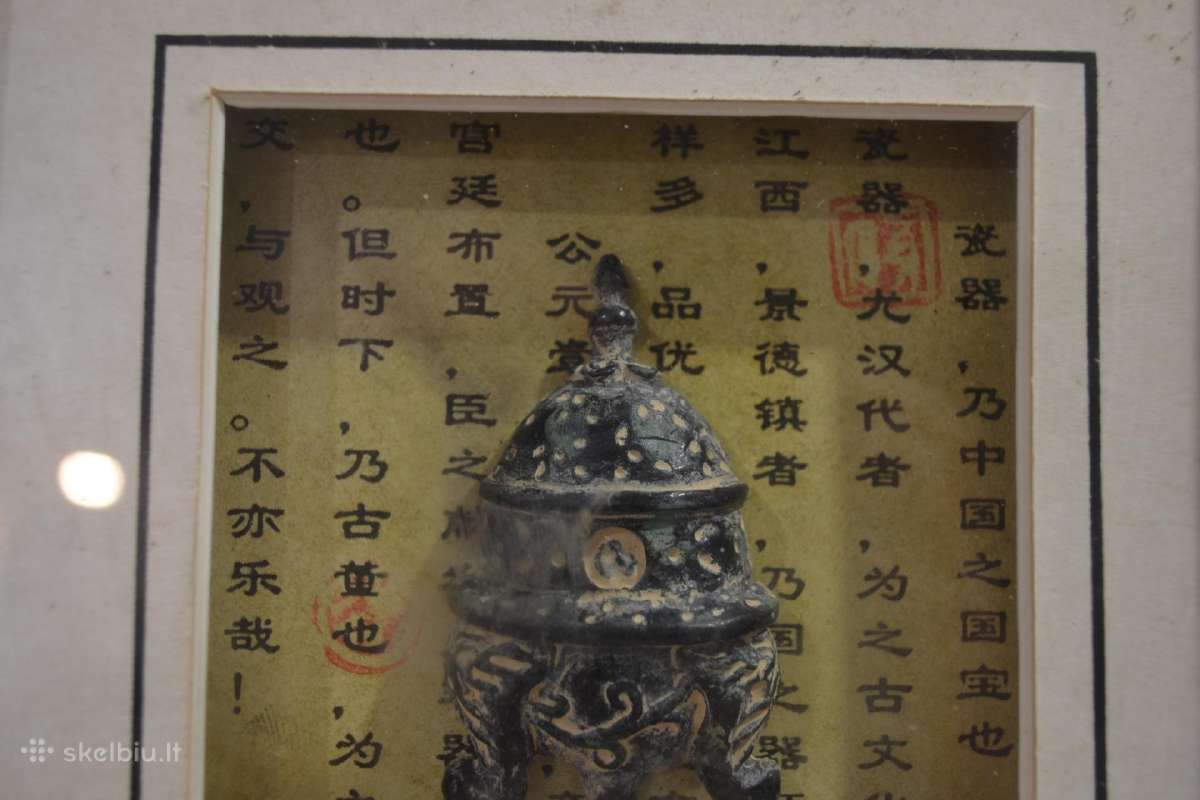 瓷器，乃中国之国宝也
瓷器，尤汉代者，为之古文
江西，景德镇者，乃国之器
样多，品优
公元壹
宫廷布置，臣之
也。但时下，乃古董也，为
交，与观之。不亦乐哉！
skelbiu.lt